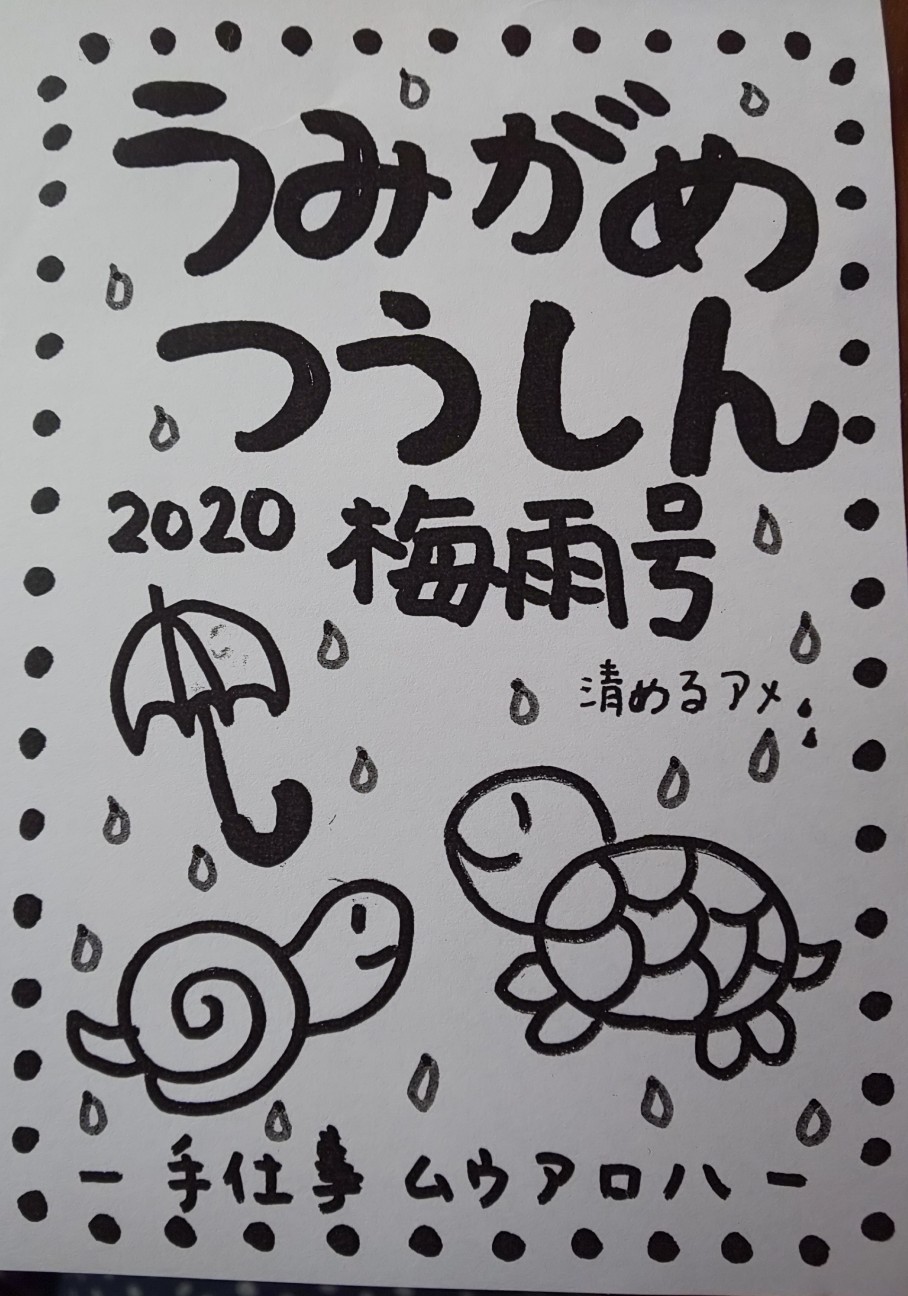 うみがめ
つうしん
2020 梅雨号
清めるアメ
ー 手仕事 ムウアロハ ー